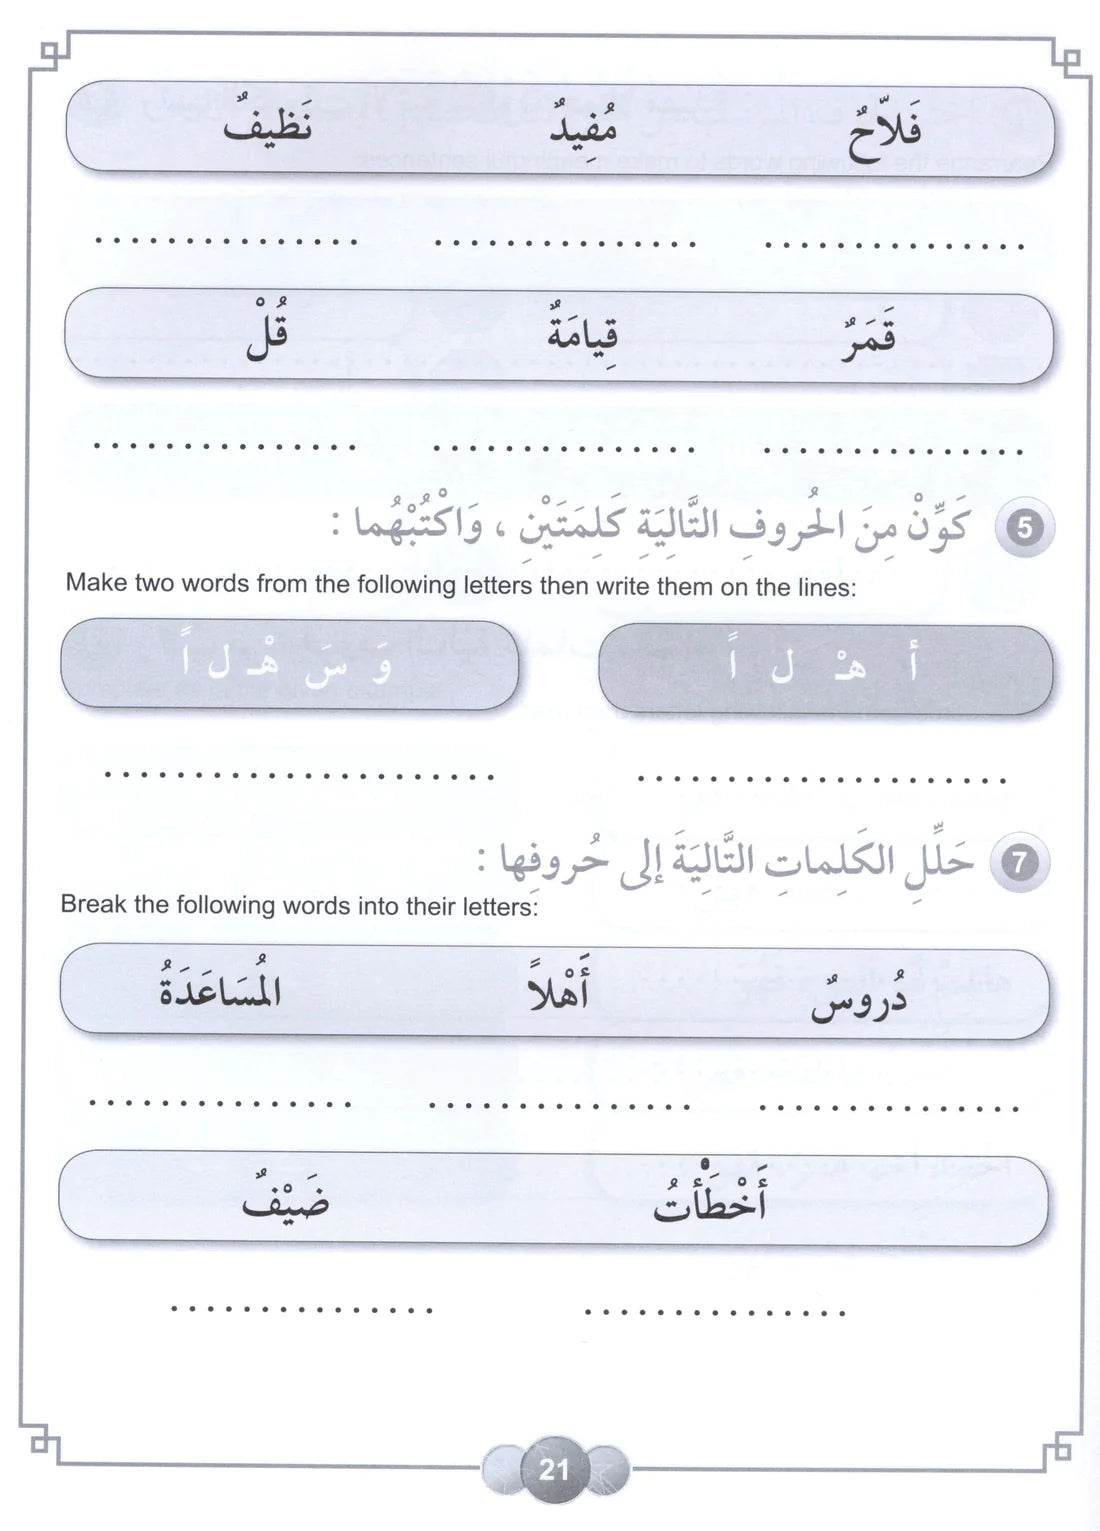 فَلاّحٌ مُفِيدٌ نَظيفٌ
قَمَرٌ قِيامَةٌ قُلْ
5 كَوِّنْ مِنَ الحُروفِ التَّالِيَةِ كَلِمَتَيْنِ ، وَاكْتُبْهُما :
Make two words from the following letters then write them on the lines:
أ هـْ ل اً وَ سَ هْـ ل اً
7 حَلِّلِ الكَلِماتِ التَّالِيَةَ إلى حُروفِها :
Break the following words into their letters:
دُروسٌ أَهْلاً المُسَاعَدَةُ
أَخْطَأْتُ ضَيْفٌ
21